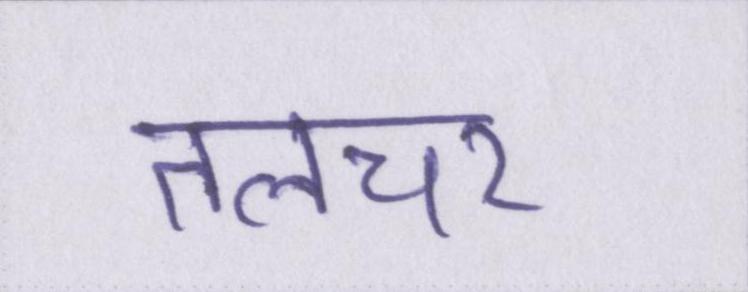 तलचर